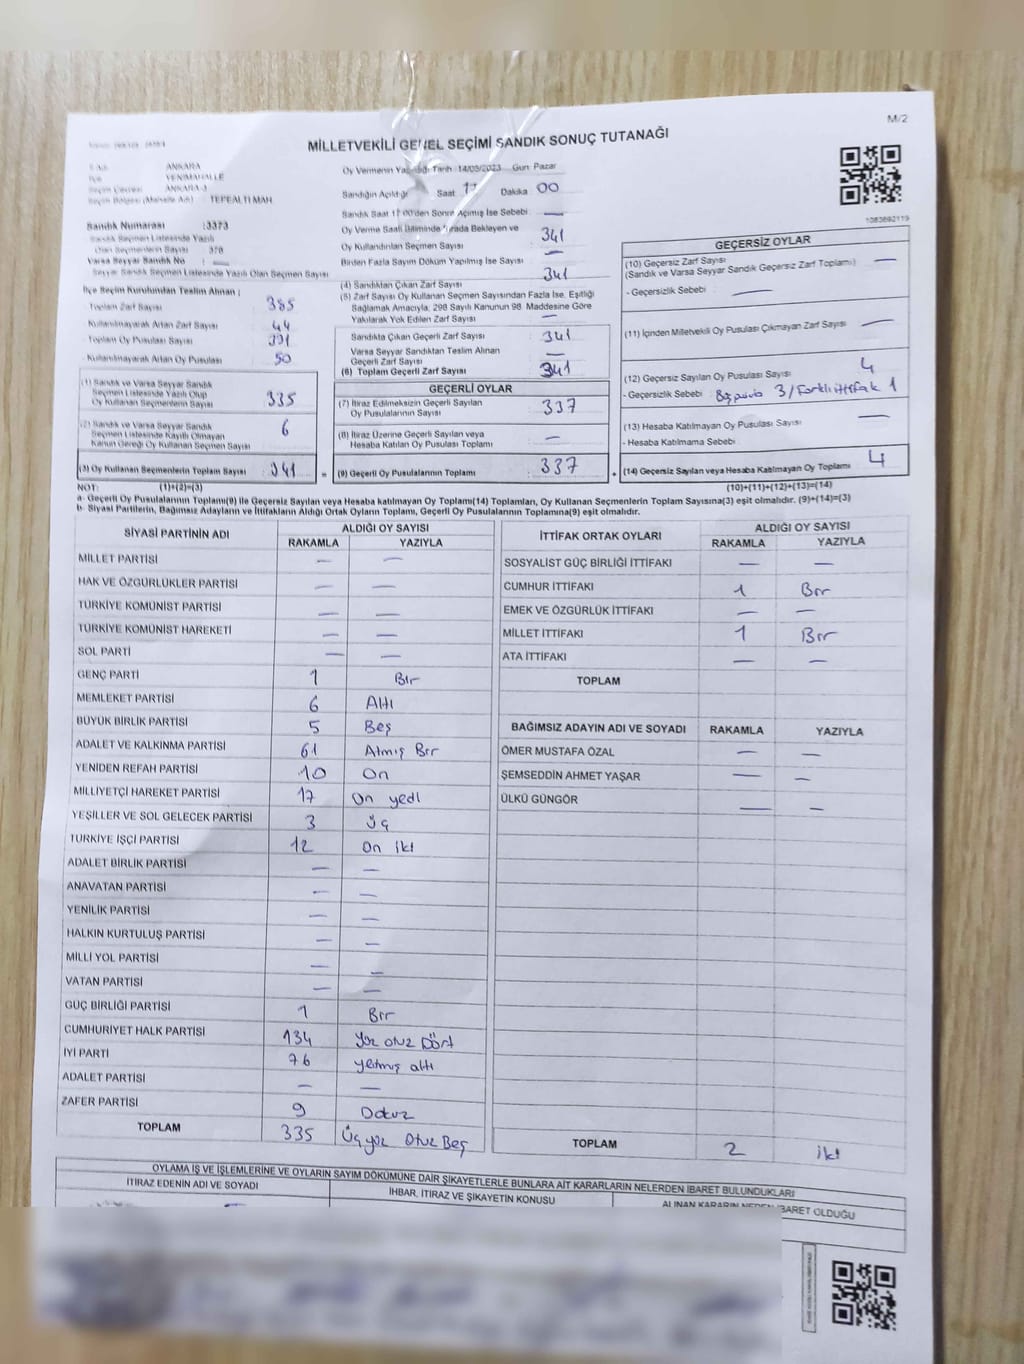 M/2
MİLLETVEKİLİ GENEL SEÇİMİ SANDIK SONUÇ TUTANAĞI
ANKARA
YENİMAHALLE
ANKARA-3
TEPEALTI MAH
Sandık Numarası :3373
Sandık Seçmen Listesinde Yazılı
Olan Seçmenlerin Sayısı : 378
Varsa Seyyar Sandık No : —
Seyyar Sandık Seçmen Listesinde Yazılı Olan Seçmen Sayısı
İlçe Seçim Kurulundan Teslim Alınan ;
Toplam Zarf Sayısı 385
Kullanılmayarak Artan Zarf Sayısı 44
Toplam Oy Pusulası 391
Kullanılmayarak Artan Oy Pusulası 50
(1) Sandık ve Varsa Seyyar Sandık
Seçmen Listesinde Yazılı Olup
Oy Kullanan Seçmenlerin Sayısı 335
(2) Sandık ve Varsa Seyyar Sandık
Seçmen Listesinde Kayıtlı Olmayan
Kanun Gereği Oy Kullanan Seçmen Sayısı 6
(3) Oy Kullanan Seçmenlerin Toplam Sayısı : 341
Oy Vermenin Yapıldığı Tarih 14/05/2023 Gün Pazar
Sandığın Açıldığı Saat 17 Dakika 00
Sandık Saat 17:00'den Sonra Açımış İse Sebebi —
Oy Verme Saati Bitiminde Sırada Bekleyen ve
Oy Kullandırılan Seçmen Sayısı 341
Birden Fazla Sayım Döküm Yapılmış İse Sayısı —
(4) Sandıktan Çıkan Zarf Sayısı 341
(5) Zarf Sayısı Oy Kullanan Seçmen Sayısından Fazla İse, Eşitliği
Sağlamak Amacıyla, 298 Sayılı Kanunun 98. Maddesine Göre
Yakılarak Yok Edilen Zarf Sayısı —
Sandıkta Çıkan Geçerli Zarf Sayısı 341
Varsa Seyyar Sandıktan Teslim Alınan
Geçerli Zarf Sayısı —
(6) Toplam Geçerli Zarf Sayısı 341
GEÇERLİ OYLAR
(7) İtiraz Edilmeksizin Geçerli Sayılan
Oy Pusulalarının Sayısı 337
(8) İtiraz Üzerine Geçerli Sayılan veya
Hesaba Katılan Oy Pusulası Toplamı —
= (9) Geçerli Oy Pusulalarının Toplamı 337
1083692119
GEÇERSİZ OYLAR
(10) Geçersiz Zarf Sayısı
(Sandık ve Varsa Seyyar Sandık Geçersiz Zarf Toplamı) —
- Geçersizlik Sebebi : —
(11) İçinden Milletvekili Oy Pusulası Çıkmayan Zarf Sayısı —
(12) Geçersiz Sayılan Oy Pusulası Sayısı 4
- Geçersizlik Sebebi : 3/Farklı ittifak 1
(13) Hesaba Katılmayan Oy Pusulası Sayısı —
- Hesaba Katılmama Sebebi :
+ (14) Geçersiz Sayılan veya Hesaba Katılmayan Oy Toplamı 4
NOT: (1)+(2)=(3) (10)+(11)+(12)+(13)=(14)
a- Geçerli Oy Pusulalarının Toplamı(9) ile Geçersiz Sayılan veya Hesaba katılmayan Oy Toplamı(14) Toplamları, Oy Kullanan Seçmenlerin Toplam Sayısına(3) eşit olmalıdır. (9)+(14)=(3)
b- Siyasi Partilerin, Bağımsız Adayların ve İttifakların Aldığı Ortak Oyların Toplamı, Geçerli Oy Pusulalarının Toplamına(9) eşit olmalıdır.
SİYASİ PARTİNİN ADI ALDIĞI OY SAYISI
RAKAMLA YAZIYLA
MİLLET PARTİSİ — —
HAK VE ÖZGÜRLÜKLER PARTİSİ — —
TÜRKİYE KOMÜNİST PARTİSİ — —
TÜRKİYE KOMÜNİST HAREKETİ — —
SOL PARTİ — —
GENÇ PARTİ 1 Bir
MEMLEKET PARTİSİ 6 Altı
BÜYÜK BİRLİK PARTİSİ 5 Beş
ADALET VE KALKINMA PARTİSİ 61 Atmış Bir
YENİDEN REFAH PARTİSİ 10 On
MİLLİYETÇİ HAREKET PARTİSİ 17 On yedi
YEŞİLLER VE SOL GELECEK PARTİSİ 3 Üç
TÜRKİYE İŞÇİ PARTİSİ 12 On iki
ADALET BİRLİK PARTİSİ — —
ANAVATAN PARTİSİ — —
YENİLİK PARTİSİ — —
HALKIN KURTULUŞ PARTİSİ — —
MİLLİ YOL PARTİSİ — —
VATAN PARTİSİ — —
GÜÇ BİRLİĞİ PARTİSİ 1 Bir
CUMHURİYET HALK PARTİSİ 134 Yüz otuz Dört
İYİ PARTİ 76 yetmiş altı
ADALET PARTİSİ — —
ZAFER PARTİSİ 9 Dokuz
TOPLAM 335 Üç yüz Otuz Beş
İTTİFAK ORTAK OYLARI ALDIĞI OY SAYISI
RAKAMLA YAZIYLA
SOSYALİST GÜÇ BİRLİĞİ İTTİFAKI — —
CUMHUR İTTİFAKI 1 Bir
EMEK VE ÖZGÜRLÜK İTTİFAKI — —
MİLLET İTTİFAKI 1 Bir
ATA İTTİFAKI — —
TOPLAM
BAĞIMSIZ ADAYIN ADI VE SOYADI RAKAMLA YAZIYLA
ÖMER MUSTAFA ÖZAL — —
ŞEMSEDDİN AHMET YAŞAR — —
ÜLKÜ GÜNGÖR — —
TOPLAM 2 iki
OYLAMA İŞ VE İŞLEMLERİNE VE OYLARIN SAYIM DÖKÜMÜNE DAİR ŞİKAYETLERLE BUNLARA AİT KARARLARIN NELERDEN İBARET BULUNDUKLARI
İTİRAZ EDENİN ADI VE SOYADI İHBAR, İTİRAZ VE ŞİKAYETİN KONUSU ALINAN KARARIN NEDEN İBARET OLDUĞU